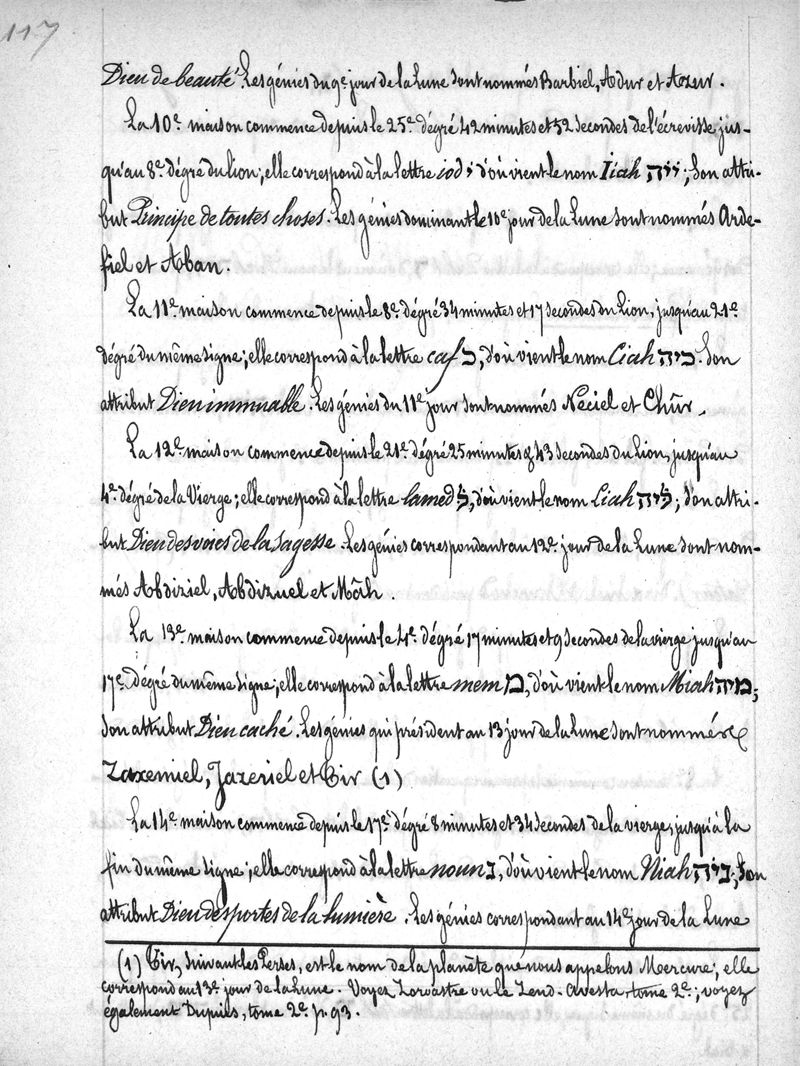 117
Dieu de beauté. Les génies du 9e. jour de la Lune sont nommés Barbiel, Adur et Azur.
La 10e. maison commence depuis le 25e. dégré 42 minutes et 52 secondes de l'écrevisse jus-
qu'au 8e. dégré du lion; elle correspond à la lettre iod י d'où vient le nom Iiah ייה; son attri-
but Principe de toutes choses. Les génies dominant le 10e. jour de la Lune sont nommés Arde-
fiel et Aban.
La 11e. maison commence depuis le 8e. dégré 34 minutes et 17 secondes du Lion, jusqu'au 21e.
dégré du même signe; elle correspond à la lettre caf כ, d'où vient le nom Ciah כיה. Son
attribut Dieu immuable. Les génies du 11e. jour sont nommés Neciel et Chûr.
La 12e. maison commence depuis le 21e. dégré 25 minutes & 43 secondes du Lion, jusqu'au
4e. dégré de la Vierge; elle correspond à la lettre lamed ל, d'où vient le nom Liah ליה; son attri-
but Dieu des voies de la sagesse. Les génies correspondant au 12e. jour de la Lune sont nom-
més Abdiziel, Abdizuel et Mâh.
La 13e. maison commence depuis le 4e. dégré 17 minutes et 9 secondes de la vierge jusqu'au
17e. dégré du même signe; elle correspond à la lettre mem מ, d'où vient le nom Miah מיה;
son attribut Dieu caché. Les génies qui président au 13 jour de la Lune sont nommés
Zaxemiel, Jazeriel et Tir (1)
La 14e. maison commence depuis le 17e. dégré 8 minutes et 34 secondes de la vierge, jusqu'à la
fin du même signe; elle correspond à la lettre noun נ, d'où vient le nom Niah ניה; son
attribut Dieu des portes de la lumière. Les génies correspondant au 14e. jour de la Lune
(1) Tir, suivant les Perses, est le nom de la planète que nous appelons Mercure; elle
correspond au 13e. jour de la Lune. Voyez Zoroastre ou le Zend-Avesta, tome 2e.; voyez
également Dupuis, tome 2e. p. 93.